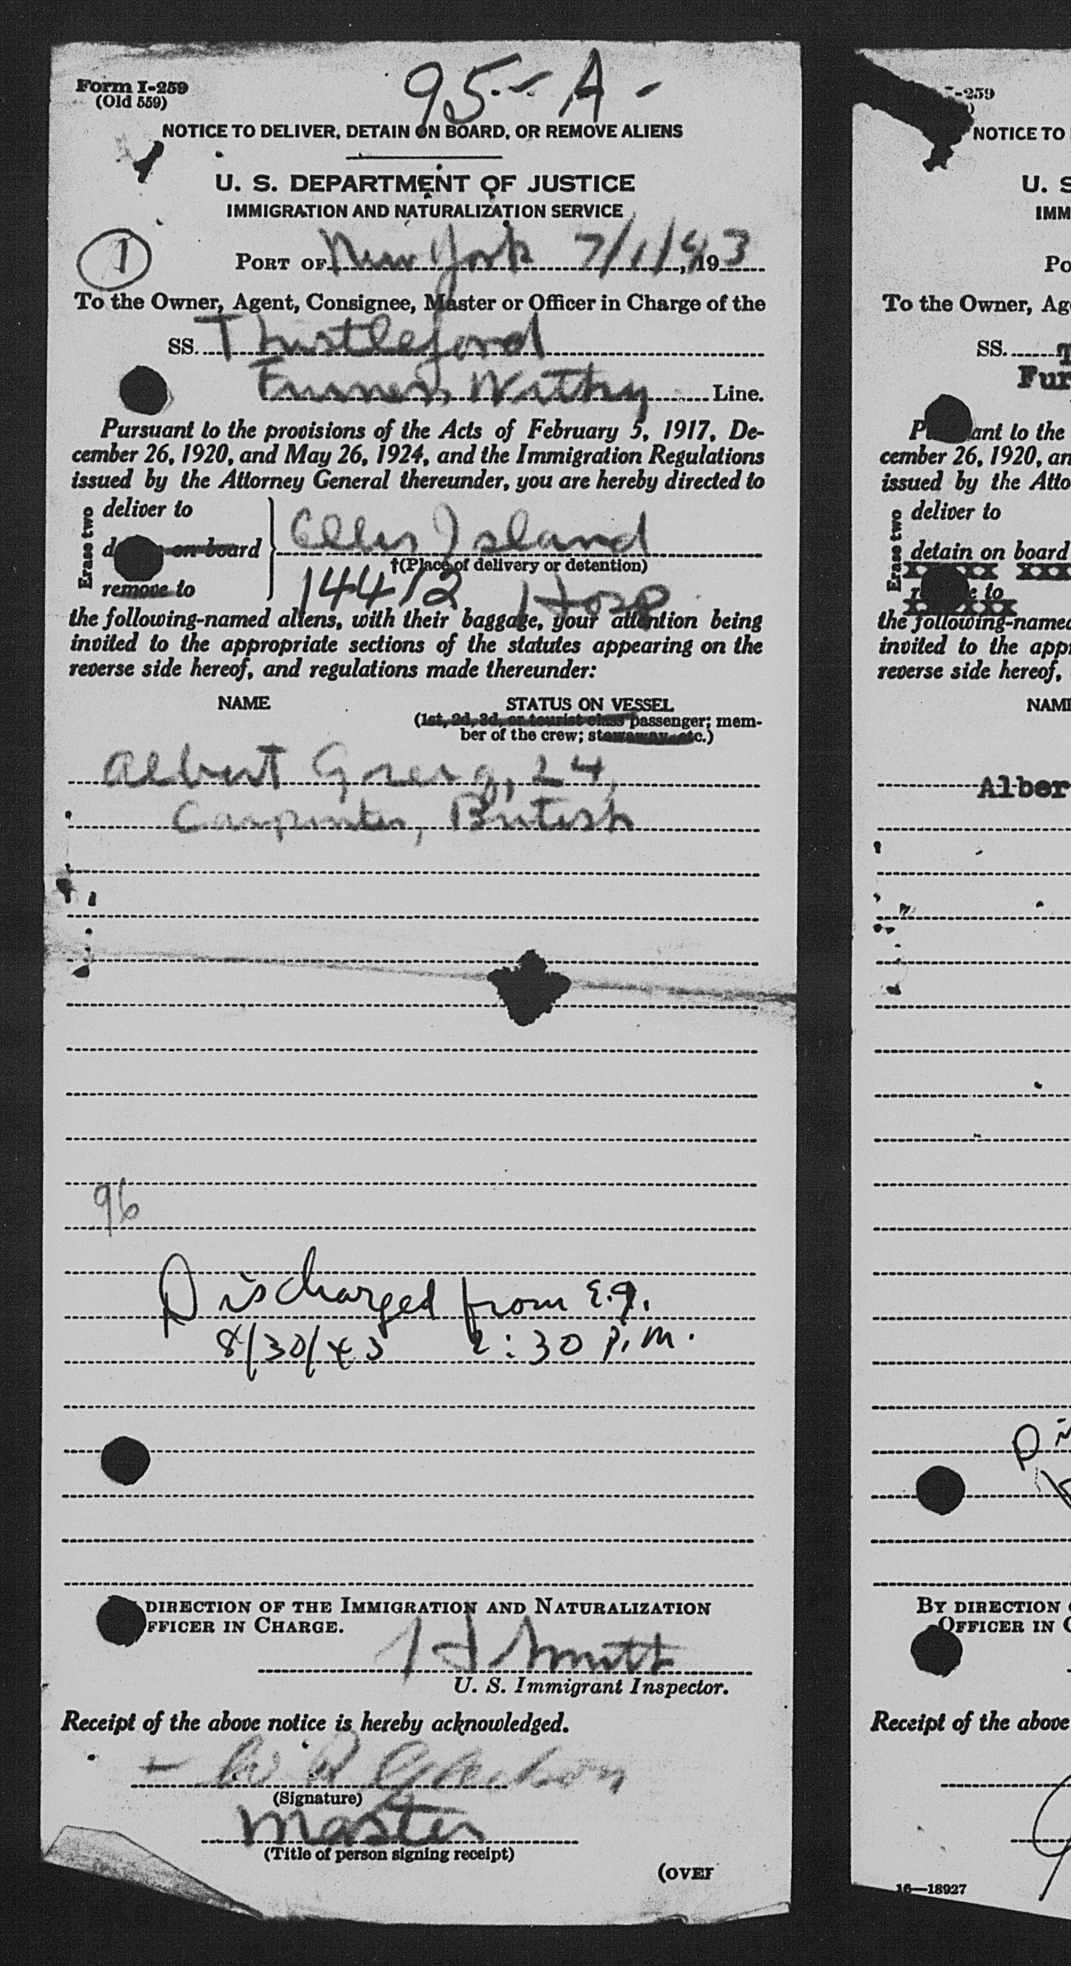 95-A-
Form I-259
(Old 559)
NOTICE TO DELIVER, DETAIN ON BOARD, OR REMOVE ALIENS
U. S. DEPARTMENT OF JUSTICE
IMMIGRATION AND NATURALIZATION SERVICE
1
PORT OF New York 7/1/43, 193
To the Owner, Agent, Consignee, Master or Officer in Charge of the
SS. Thistleford
Furness Withy Line.
Pursuant to the provisions of the Acts of February 5, 1917, De-
cember 26, 1920, and May 26, 1924, and the Immigration Regulations
issued by the Attorney General thereunder, you are hereby directed to
Erase two
deliver to
on board
remove to
Ellis Island
†(Place of delivery or detention)
14412 Hosp.
the following-named aliens, with their baggage, your attention being
invited to the appropriate sections of the statutes appearing on the
reverse side hereof, and regulations made thereunder:
NAME STATUS ON VESSEL
(1st, 2d, 3d, or tourist class passenger; mem-
ber of the crew; stowaway, etc.)
Albert 24,
Carpenter, British
96
Discharged from E.I.
8/30/43 2:30 P.M.
DIRECTION OF THE IMMIGRATION AND NATURALIZATION
FFICER IN CHARGE.
Smith
U. S. Immigrant Inspector.
Receipt of the above notice is hereby acknowledged.
(Signature)
Master
(Title of person signing receipt)
(OVER
-259
NOTICE TO
U. S
IMM
PO
To the Owner, Ag
SS. T
Fur
ant to the
cember 26, 1920, an
issued by the Atto
Erase two
deliver to
detain on board
XXXXXX XXX
e to
the following-named
invited to the app
reverse side hereof,
NAM
Alber
BY DIRECTION
OFFICER IN C
Receipt of the above
16—18927